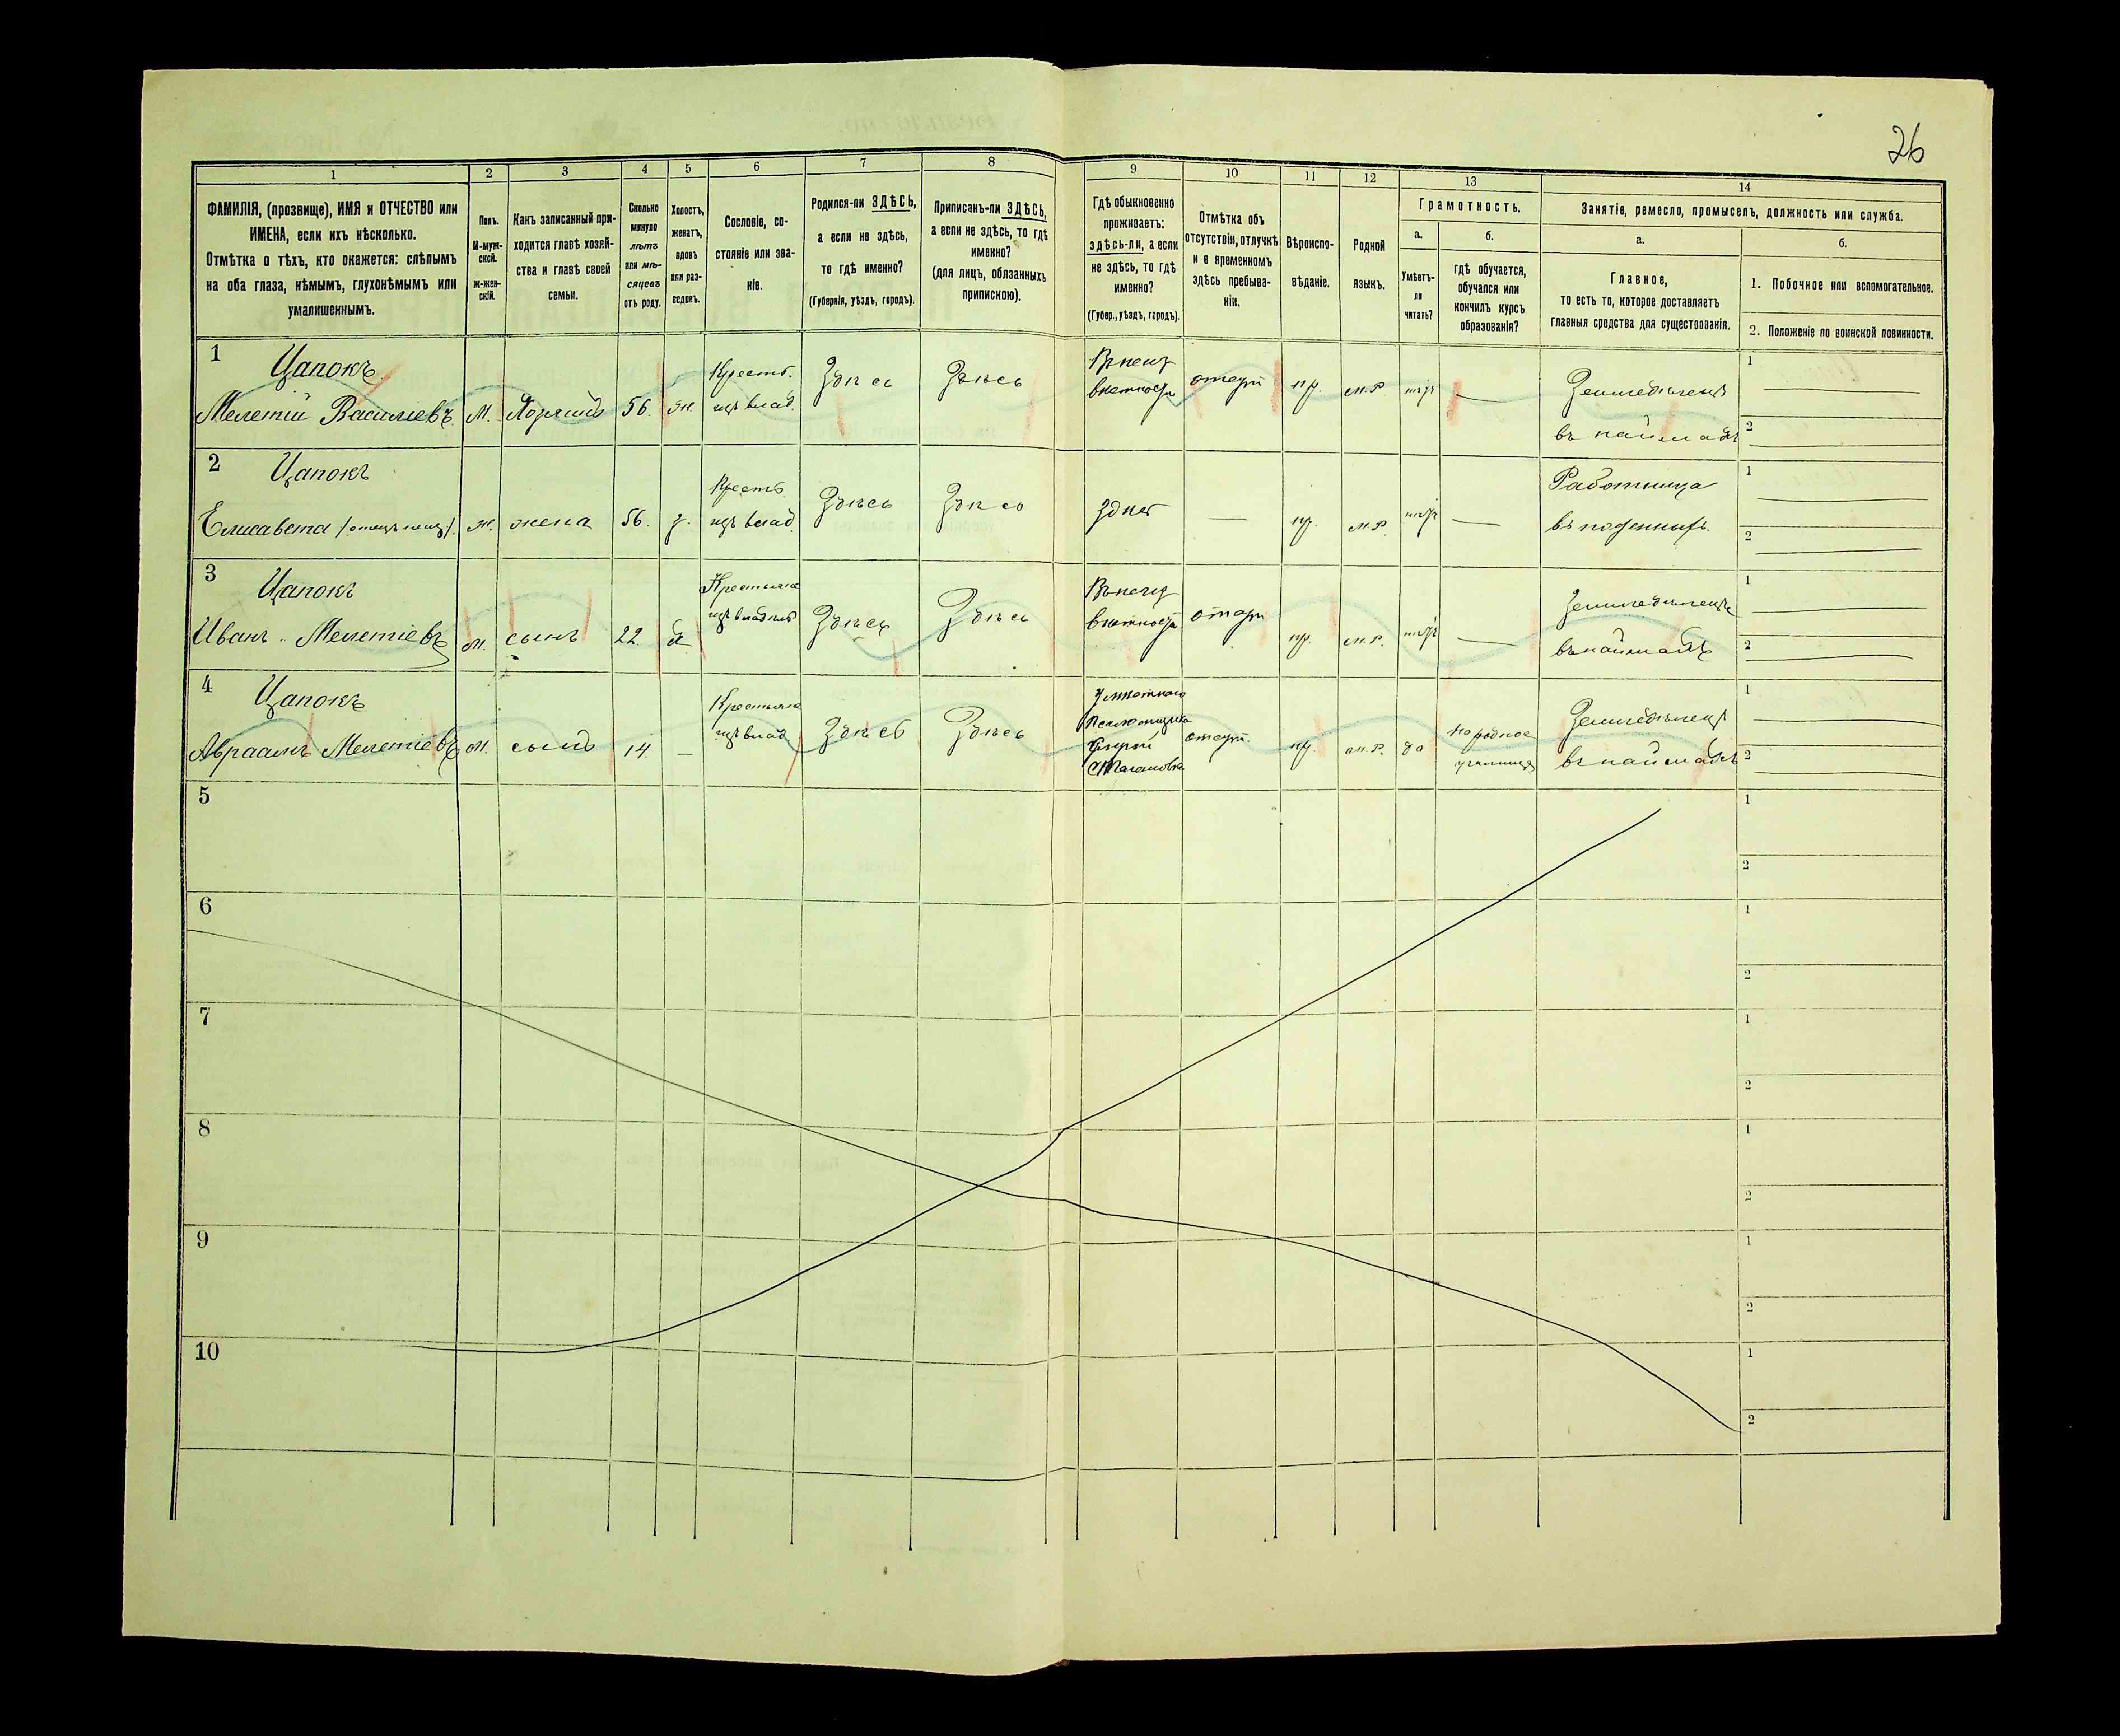 26
1 2 3 4 5 6 7 8 9 10 11 12 13 14
ФАМИЛІЯ, (прозвище), ИМЯ и ОТЧЕСТВО или
ИМЕНА, если ихъ нѣсколько.
Отмѣтка о тѣхъ, кто окажется: слѣпымъ
на оба глаза, нѣмымъ, глухонѣмымъ или
умалишеннымъ.
Полъ.
М-муж-
ской.
Ж-жен-
скій.
Какъ записанный при-
ходится главѣ хозяй-
ства и главѣ своей
семьи.
Сколько
минуло
лѣтъ
или мѣ-
сяцевъ
отъ роду.
Холостъ,
женатъ,
вдовъ
или раз-
веденъ.
Сословіе, со-
стояніе или зва-
ніе.
Родился-ли ЗДѢСЬ,
а если не здѣсь,
то гдѣ именно?
(Губернія, уѣздъ, городъ).
Приписанъ-ли ЗДѢСЬ,
а если не здѣсь, то гдѣ
именно?
(для лицъ, обязанныхъ
припискою).
Гдѣ обыкновенно
проживаетъ:
здѣсь-ли, а если
не здѣсь, то гдѣ
именно?
(Губер., уѣздъ, городъ).
Отмѣтка объ
отсутствіи, отлучкѣ
и о временномъ
здѣсь пребыва-
ніи.
Вѣроиспо-
вѣданіе.
Родной
языкъ.
Грамотность.
а.
Умѣетъ-
ли
читать?
б.
гдѣ обучается,
обучался или
кончилъ курсъ
образованія?
Занятіе, ремесло, промыселъ, должность или служба.
а.
Главное,
то есть то, которое доставляетъ
главныя средства для существованія.
б.
1. Побочное или вспомогательное.
2. Положеніе по воинской повинности.
1 Цапокъ
Мелетій Васильевъ М. Хозяинъ 56. ж. Крестъ. изъ влад. Здѣсь Здѣсь пр. м.р. Земледѣлецъ
1
2
2 Цапокъ
Елисавета ж. жена 56. з. Крестъ. изъ влад. Здѣсь Здѣсь Здѣсь — пр. м.р. — Работница
1
2
3 Цапокъ
Иванъ Мелетіевъ М. сынъ 22. Крестьяне изъ владѣл. Здѣсь Здѣсь пр. м.р. — Земледѣлецъ
1
2
4 Цапокъ
Авраамъ Мелетіевъ М. сынъ 14. — Крестьяне изъ влад. Здѣсь Здѣсь пр. м.р. да народное училище Земледѣлецъ
1
2
5 1
2
6 1
2
7 1
2
8 1
2
9 1
2
10 1
2